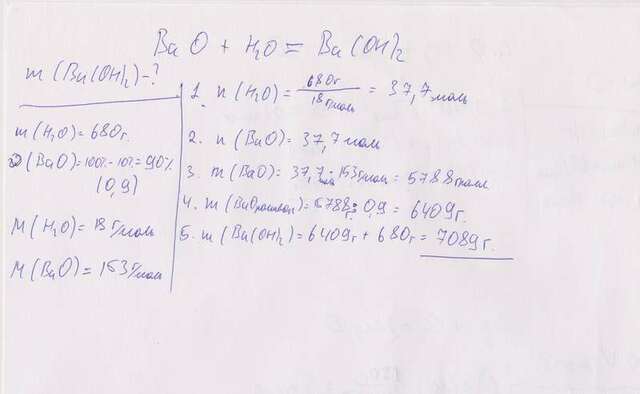 BaO + H₂O = Ba(OH)₂
m(Ba(OH)₂)-?
m(H₂O)=680г.
ω(BaO)=100%-10%=90%
(0,9)
M(H₂O)=18 г/моль
M(BaO)=153г/моль
1. n(H₂O)= 680г / 18г/моль = 37,7моль
2. n(BaO)=37,7моль
3. m(BaO)=37,7моль·153г/моль=5788г
4. m(BaO)=5788г:0,9=6409г.
5. m(Ba(OH)₂)=6409г+680г=7089г.